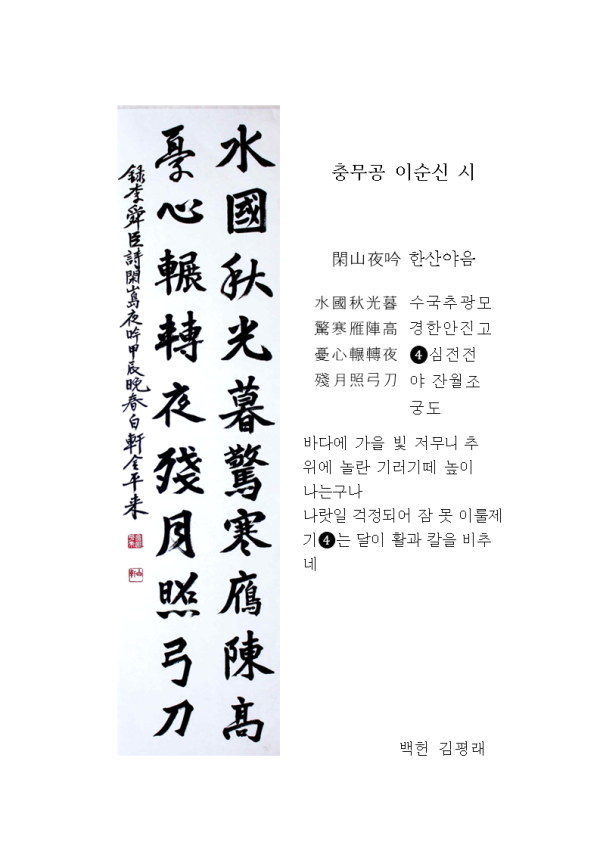 水國秋光暮驚寒鴈陳高
憂心輾轉夜殘月照弓刀
錄李舜臣詩閑山島夜吟甲辰晚春白軒金平来
충무공 이순신 시
閑山夜吟 한산야음
水國秋光暮 수국추광모
驚寒雁陣高 경한안진고
憂心輾轉夜 ❹심전전
殘月照弓刀 야 잔월조
궁도
바다에 가을 빛 저무니 추
위에 놀란 기러기떼 높이
나는구나
나랏일 걱정되어 잠 못 이룰제
기❹는 달이 활과 칼을 비추
네
백헌 김평래